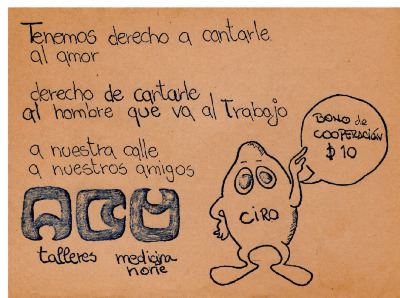 Tenemos derecho a cantarle
al amor
derecho de cantarle
al hombre que va al Trabajo
a nuestra calle
a nuestros amigos
ACU
talleres
medicina
norte
CIRO
BONO de
COOPERACIÓN
$ 10